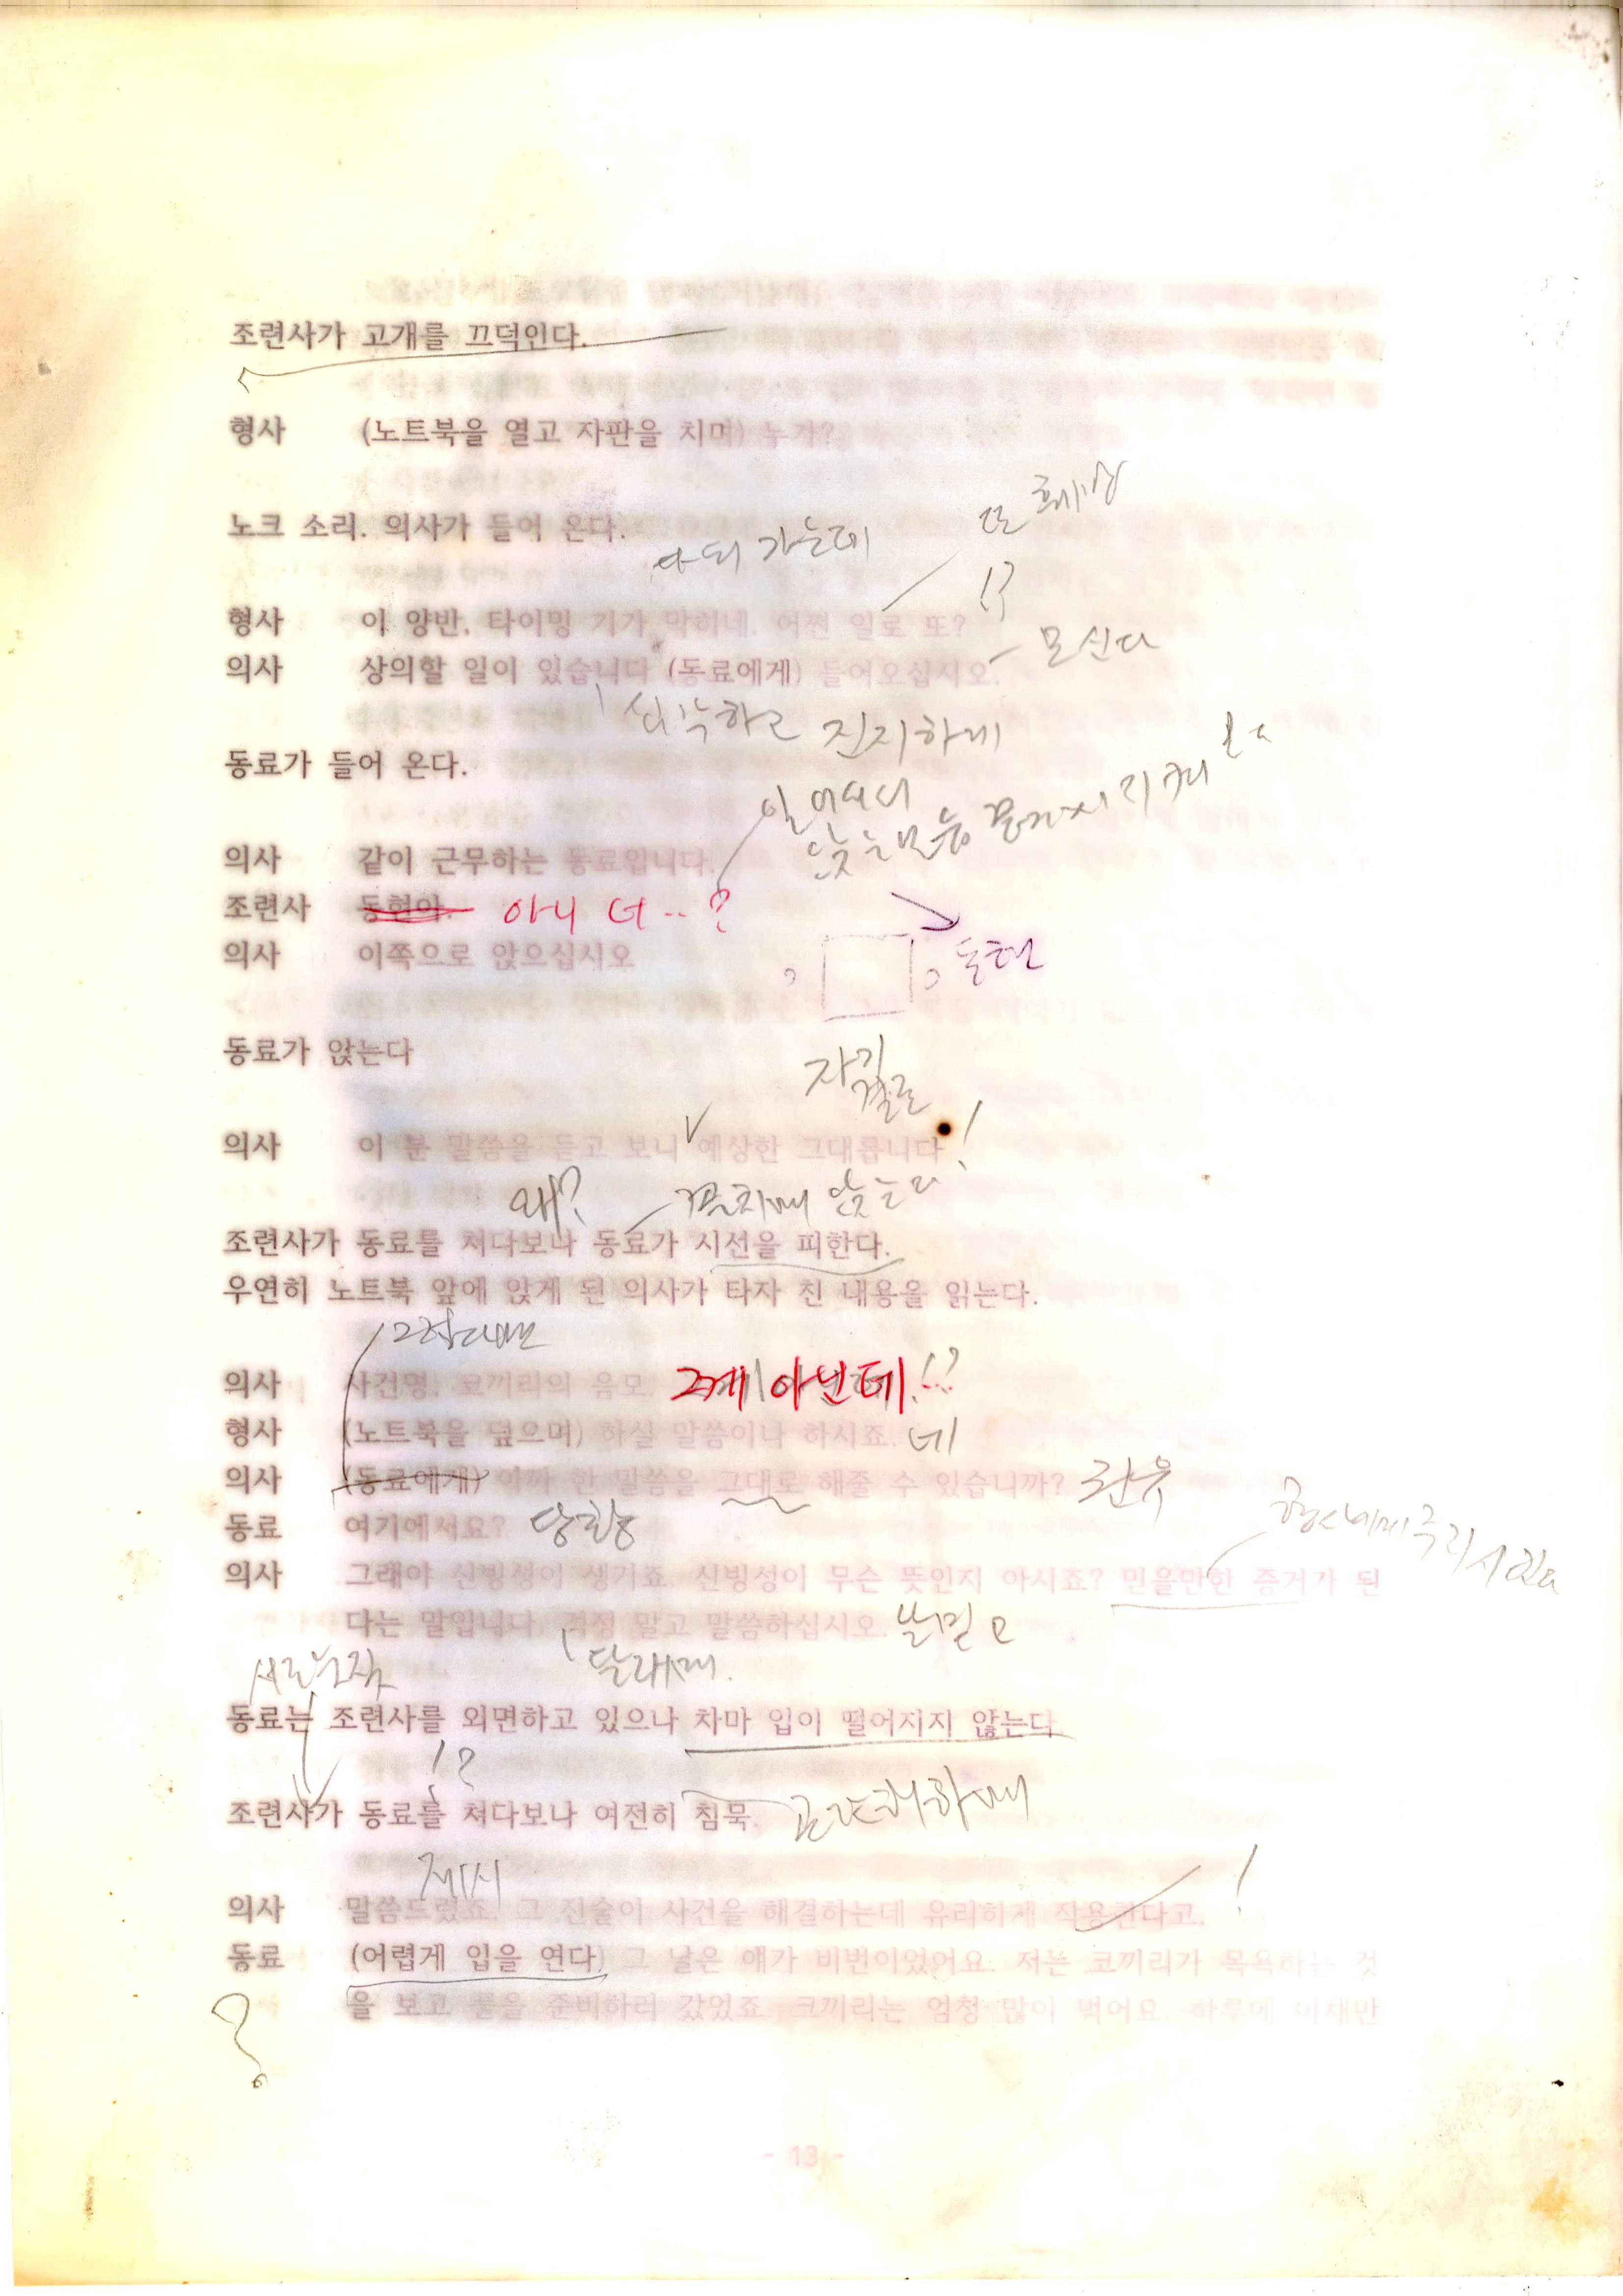 조련사가 고개를 끄덕인다.
형사 (노트북을 열고 자판을 치며) 누가?
또 훼방
노크 소리. 의사가 들어 온다.
다 되 가는데
!?
형사 이 양반, 타이밍 기가 막히네. 어쩐 일로 또?
모신다
의사 상의할 일이 있습니다 (동료에게) 들어오십시오.
진지하게
동료가 들어 온다.
일어서서
앉는 모습 끝까지 지켜본다
의사 같이 근무하는 동료입니다.
조련사 동현아. 아니 너..?
의사 이쪽으로 앉으십시오
동현
동료가 앉는다
의사 이 분 말씀을 듣고 보니 예상한 그대롭니다!
왜? 앉는다
조련사가 동료를 쳐다보나 동료가 시선을 피한다.
우연히 노트북 앞에 앉게 된 의사가 타자 친 내용을 읽는다.
의사 사건명, 코끼리의 음모. 그게 아닌데..!?
형사 (노트북을 덮으며) 하실 말씀이나 하시죠. 네
의사 (동료에게) 아까 한 말씀을 그대로 해줄 수 있습니까? 권유
동료 여기에서요? 당황
의사 그래야 신빙성이 생기죠. 신빙성이 무슨 뜻인지 아시죠? 믿을만한 증거가 된
다는 말입니다. 걱정 말고 말씀하십시오.
달래며.
동료는 조련사를 외면하고 있으나 차마 입이 떨어지지 않는다
!?
조련사가 동료를 쳐다보나 여전히 침묵.
제시
!
의사 말씀드렸죠. 그 진술이 사건을 해결하는데 유리하게 작용한다고.
동료 (어렵게 입을 연다) 그 날은 얘가 비번이었어요. 저는 코끼리가 목욕하는 것
을 보고 풀을 준비하러 갔었죠. 코끼리는 엄청 많이 먹어요. 하루에 야채만
?
- 13 -